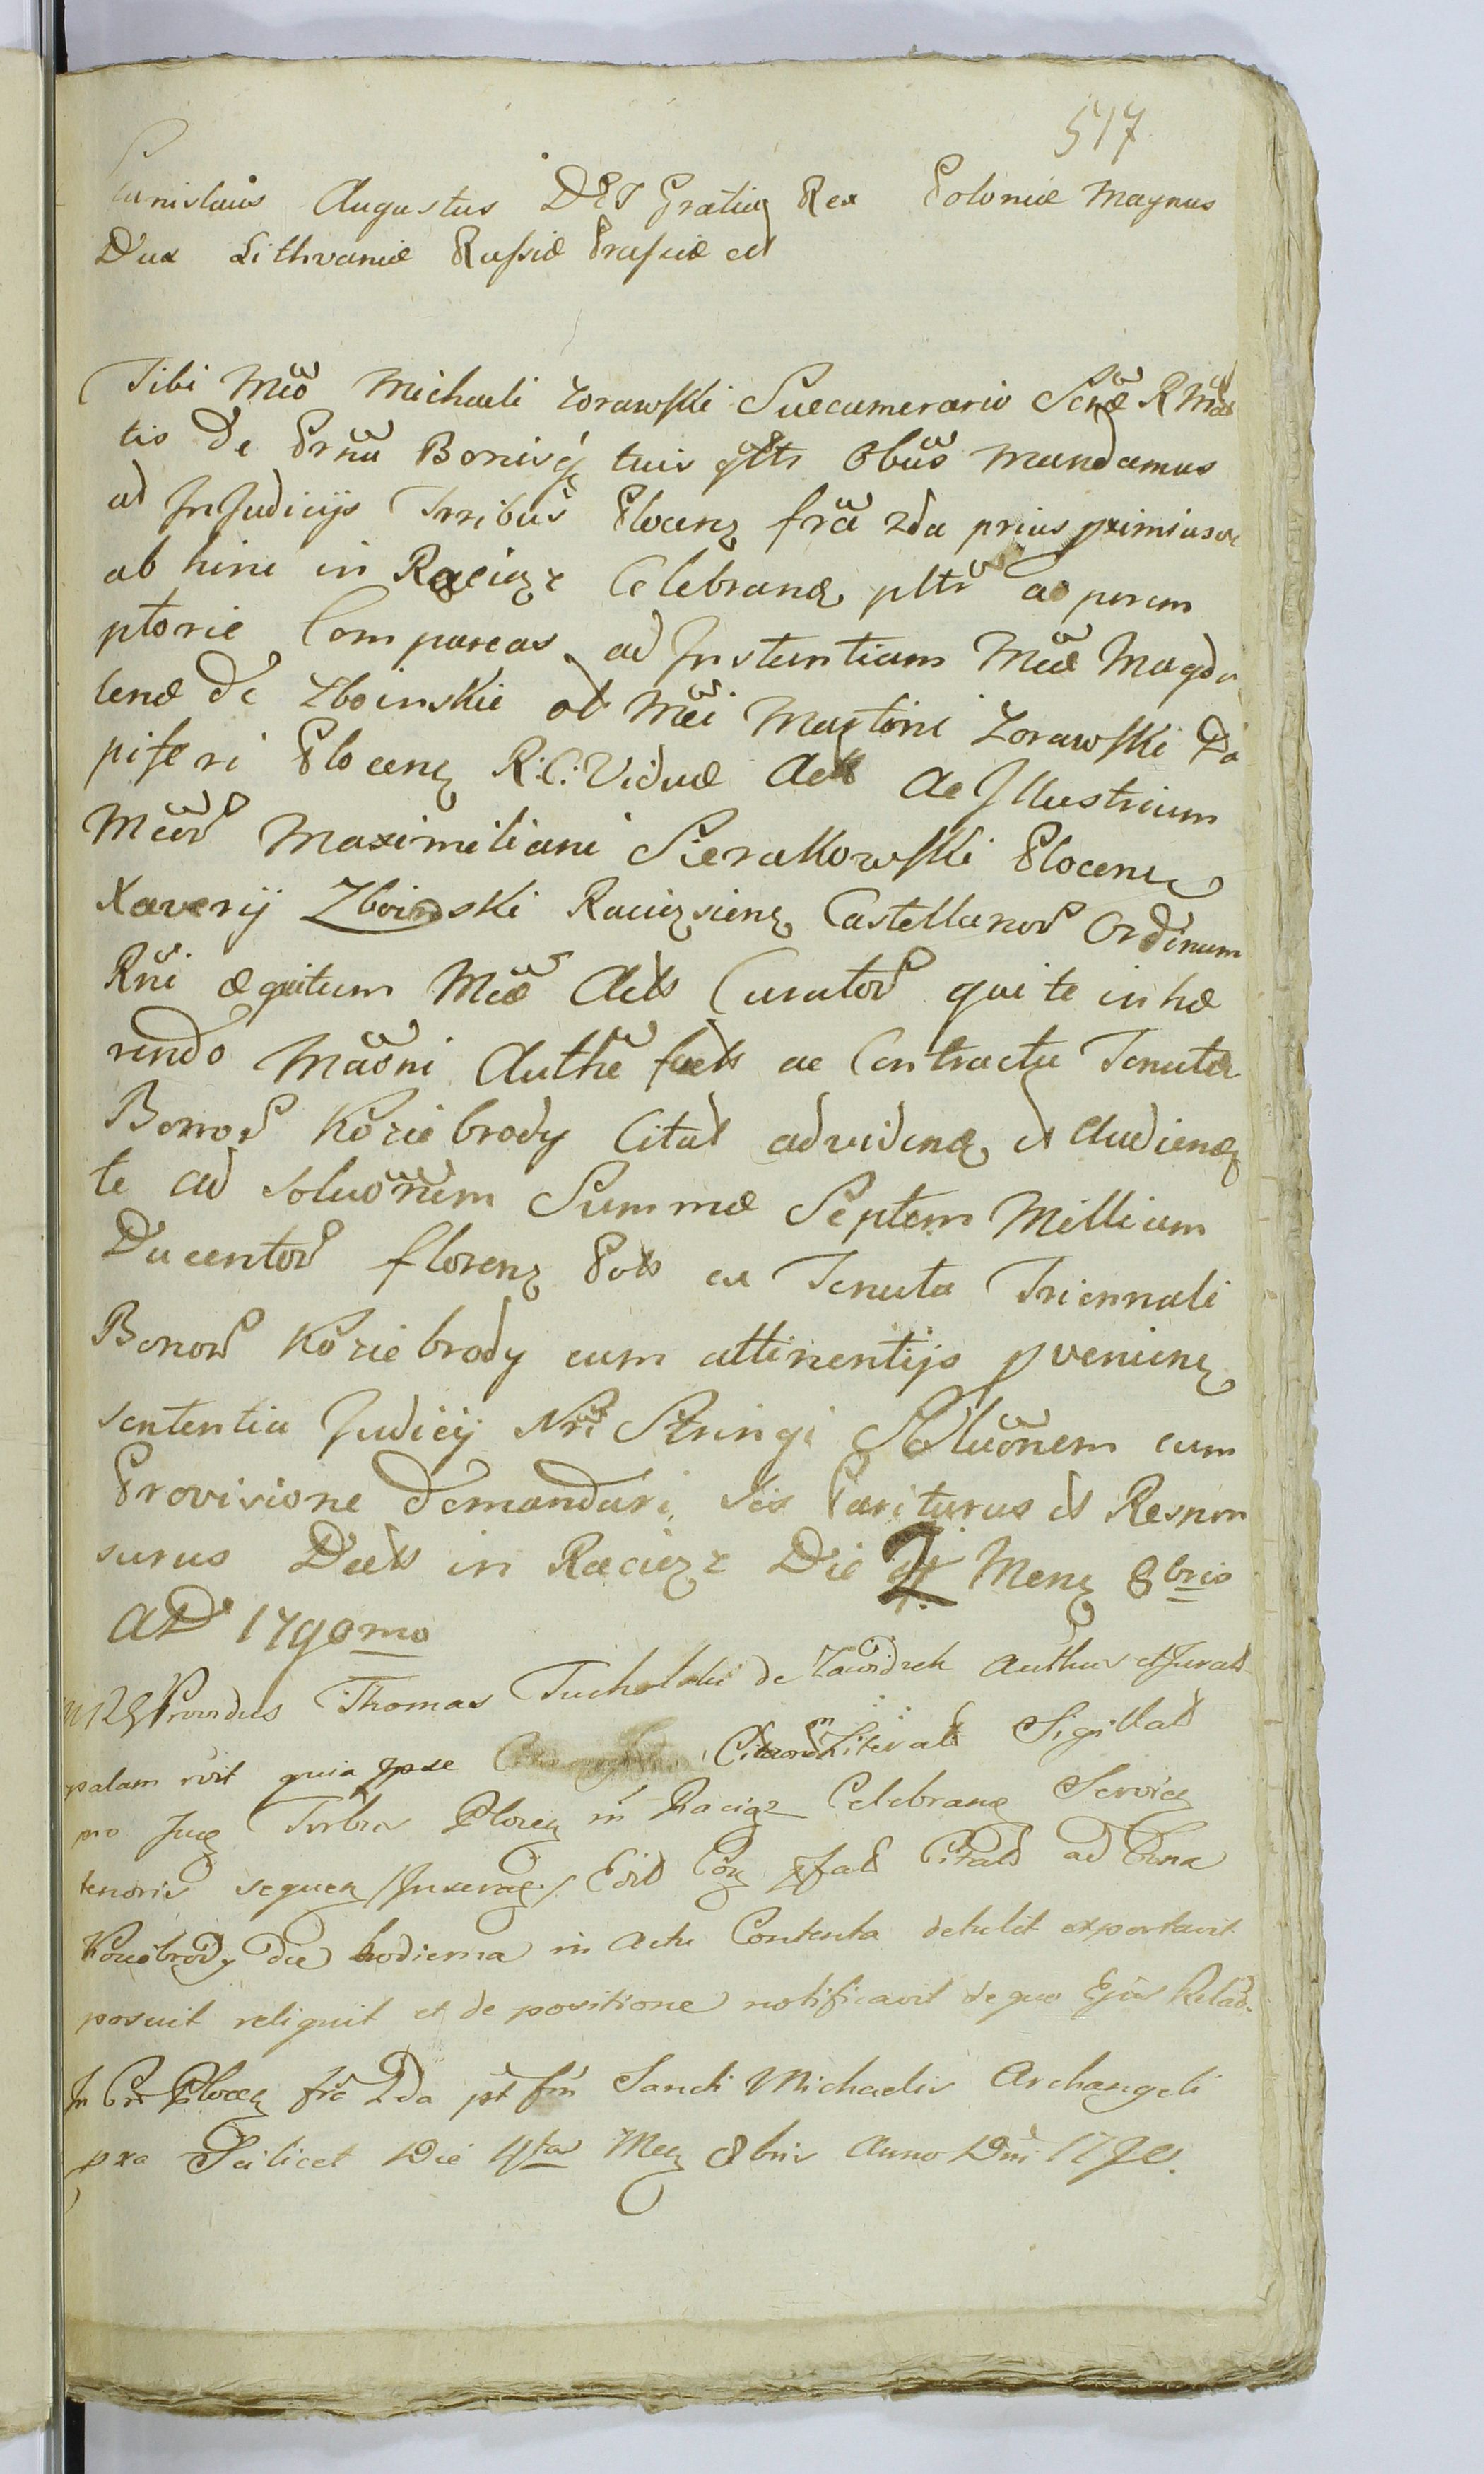 517
Stanislaus Augustus DEI Gratia Rex Poloniæ Magnus
Dux Lithvaniæ Russiæ Prussiæ et
Tibi Mco Michaeli Zorawski Succamerario Scræ R Mtt
tis de Prna Bonisq tuis gtts Obus Mandamus
ut In Judicijs Trribus Plocenz fra 2da prius pximiusve
ab hinc in Raciąz Celebranz pltr ac perem
ptorie Compareas ad Instantiam Mcæ Magda
lenæ de Zboinskie ol Mci Martini Zorawski Da
piferi Plocenz R:C: Viduæ Act ac Illustrium
Mcor Maximiliani Sierakowski Plocenz
Xaverij Zboinski Raciązienz Castellanor Ordinum
Rni æquitum Mcæ Act Curator qui te inhæ
rendo Maoni Authe fact ac Contractu Tenutæ
Bonor Koziebrody Citat ad videnz et Audienz
te ad soluonem Summæ Septem Millium
Ducentor florenz Pol ex Tenuta Triennali
Bonor Koziebrody cum attinentijs pvenienz
sententia Judicij Nri Stringi Soluonem cum
Provisione demandari, sis Pariturus et Respon
surus Dat in Raciąz Die 4 Menz 8bris
AD 1790mo
Providus Thomas Tucholski de Zawidzek Authus et Jurat
palam rvit quia Ipse Citaonem Literat Sigillat
pro Jug Trrbus Plocenz in Raciąz Celebranz Servien
tenoris sequenz /Inserag/ Cit ad Bna
Koziebrody die hodierna in Actu Contenta detulit exportavit
posuit reliquit et de positione notificavit de quo Ejus Relao
In Cr Plocenz fra 2da pt fm Sancti Michaelis Archangeli
pxa Scilicet Die 4ta Menz 8bris Anno Dni 1790.